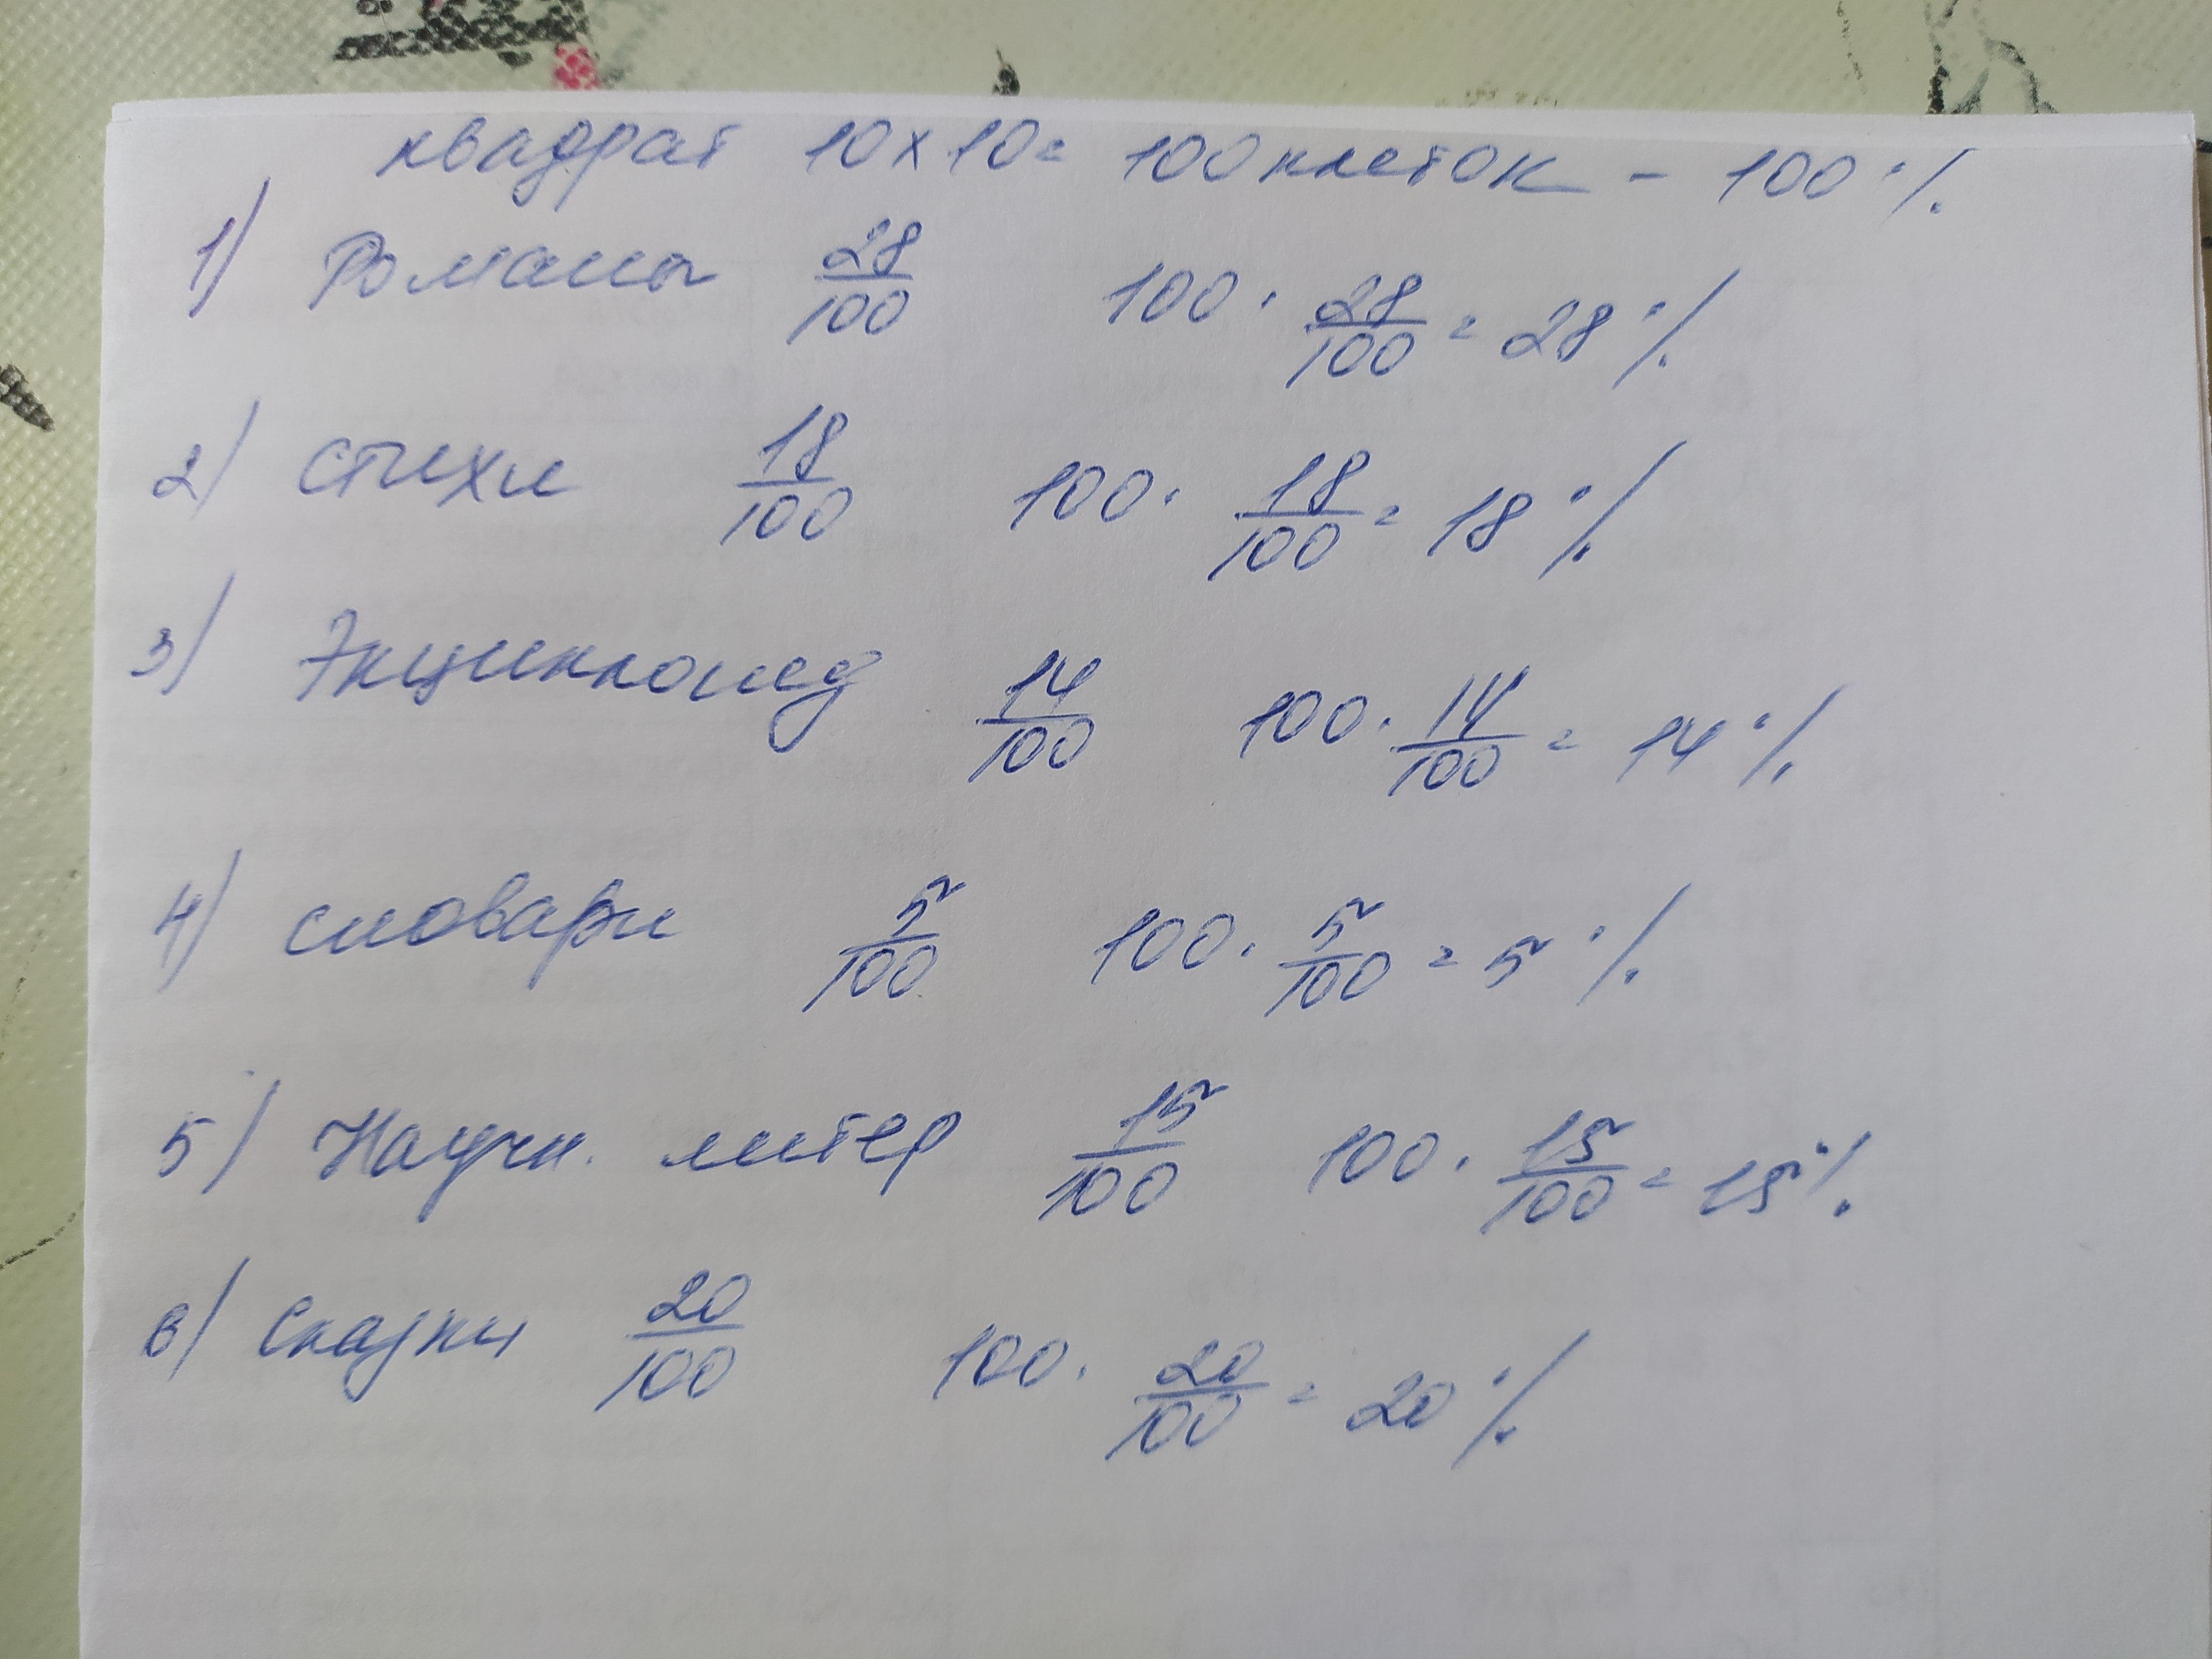 квадрат 10 x 10 = 100 клеток - 100 %
1) Романы 28/100 100 · 28/100 = 28 %
2) стихи 18/100 100 · 18/100 = 18 %
3) Экциклопед 14/100 100 · 14/100 = 14 %
4) словари 5/100 100 · 5/100 = 5 %
5) Научн. литер 15/100 100 · 15/100 = 15 %
6) Сказки 20/100 100 · 20/100 = 20 %